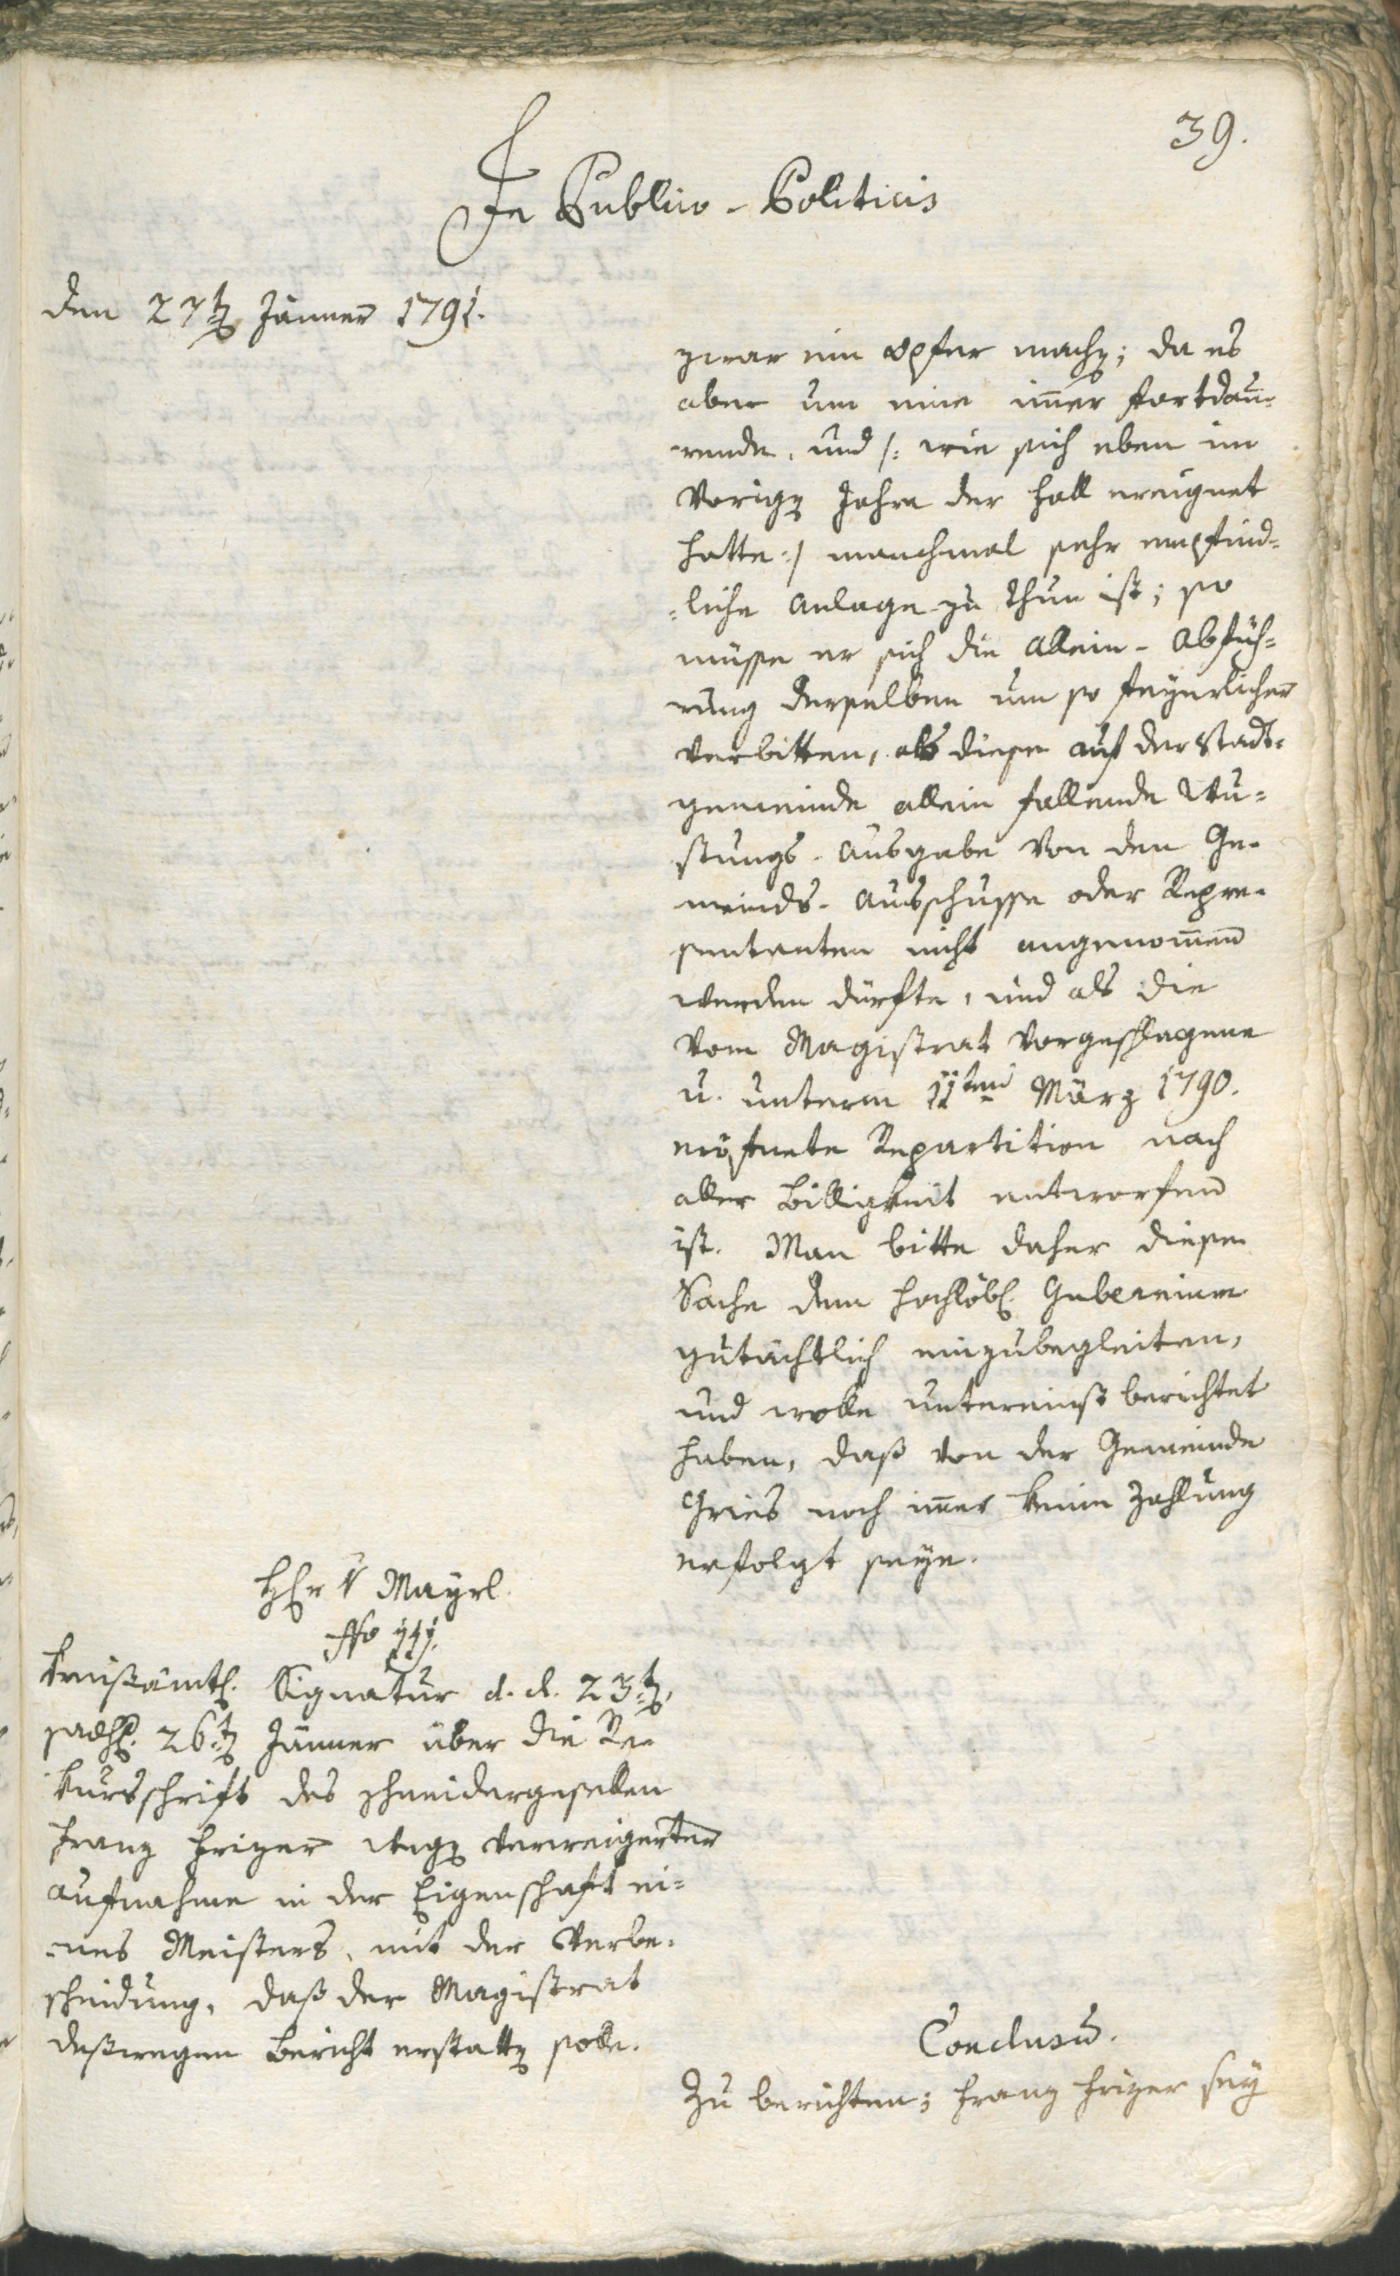 39.
In Publico-Politicis
den 27ten Jänner 1791.
zwar ein Opfer machen; da es
aber um eine immer fortdau-
rende, und /: wie sich eben im
vorigen Jahre der Fall ereignet
hatte :/ manchmal sehr empfind-
-liche Anlage zu thun ist; so
müsse er sich die Allein-Abfüh-
rung derselben um so feyerlicher
verbitten, als diese auf der Stadt-
gemeinde allein fallende
Ausgabe von den Ge-
meinds-Ausschusse oder Repre-
sentanten nicht angenommen
werden dürfte, und als die
vom Magistrat vorgeschlagene
u. unterm 11ten März 1790.
eröfnete Repartition nach
aller Billigkeit entworfen
ist. Man bitte daher diese
Sache dem hochlöbl. Gubernium
gutächtlich einzubegleiten,
und wolle untereinst berichtet
haben, daß von der Gemeinde
Gries noch immer keine Zahlung
erfolgt seye.
Herr v Mayrl.
No
Kreisämtl. Signatur d. d. 23ten,
praes. 26ten Jänner über die Re-
kursschrift des Schneidergesellen
Franz Frizer wegen verweigerter
Aufnahme in der Eigenschaft ei-
-nes Meisters, mit der Verbe-
scheidung, daß der Magistrat
deßwegen Bericht erstatten solle.
Conclusum.
Zu berichten; Franz Frizer sey